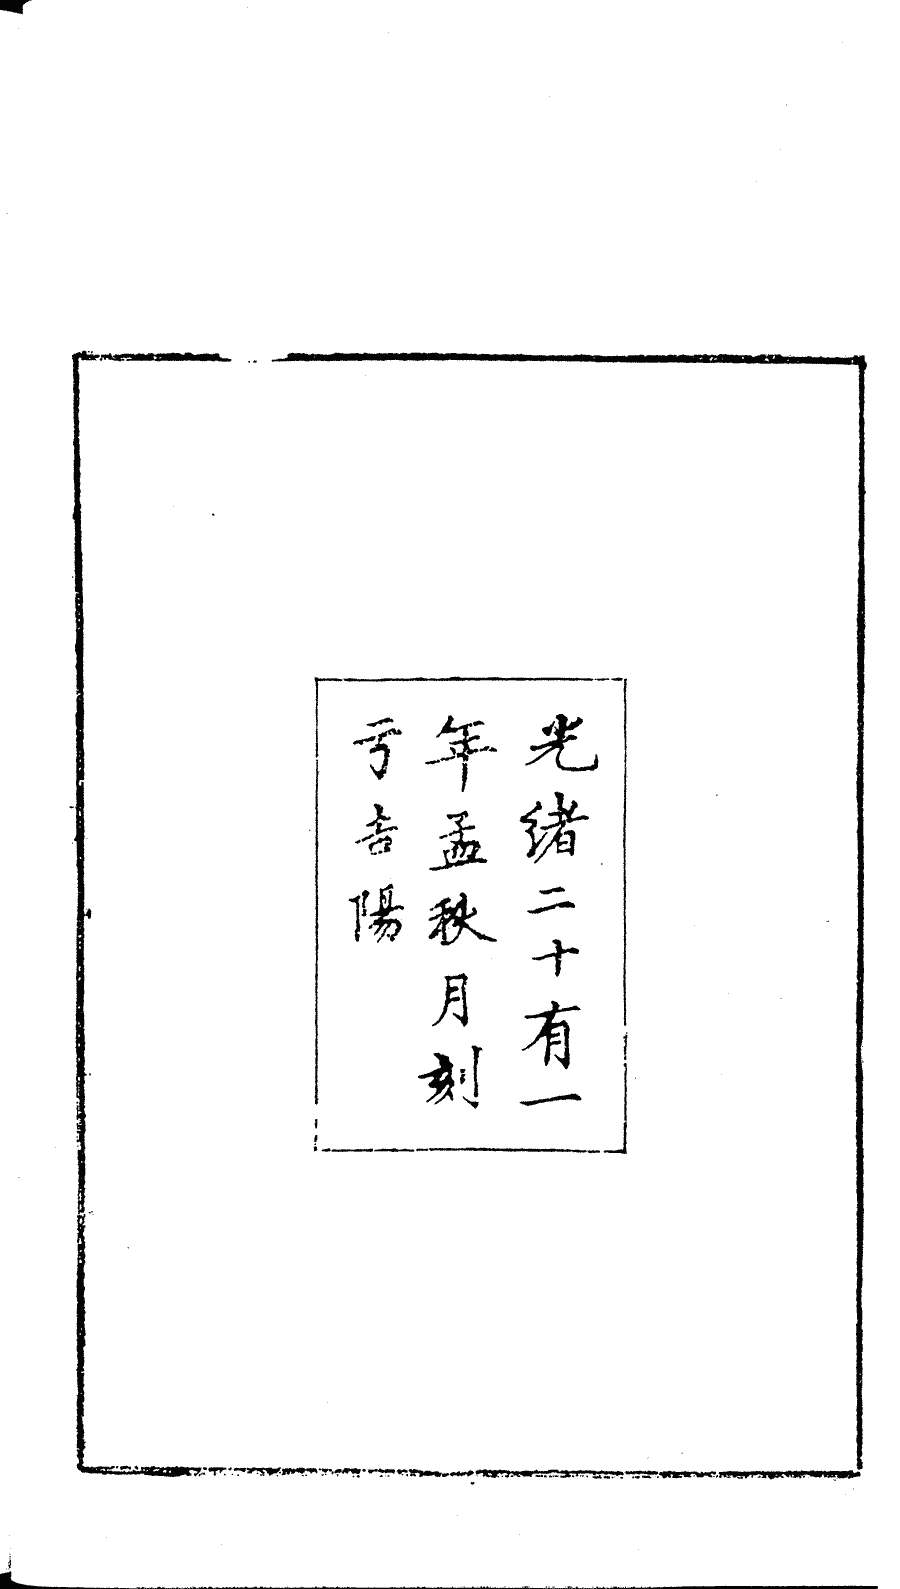 光緒二十有一
年孟秋月刻
亐吉陽